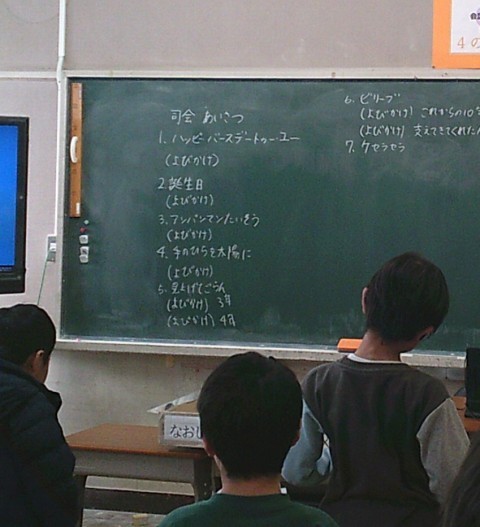 司会 あいさつ
1、ハッピーバースデートゥーユー
(よびかけ)
2、誕生日
(よびかけ)
3、アンパンマンたいそう
(よびかけ)
4、手のひらを太陽に
(よびかけ)
5、見上げてごらん
(よびかけ) 3年
(よびかけ) 4年
6、ビリーブ
(よびかけ) これからの10
(よびかけ) 支えてきてくれた
7、ケセラセラ
4の
なおし